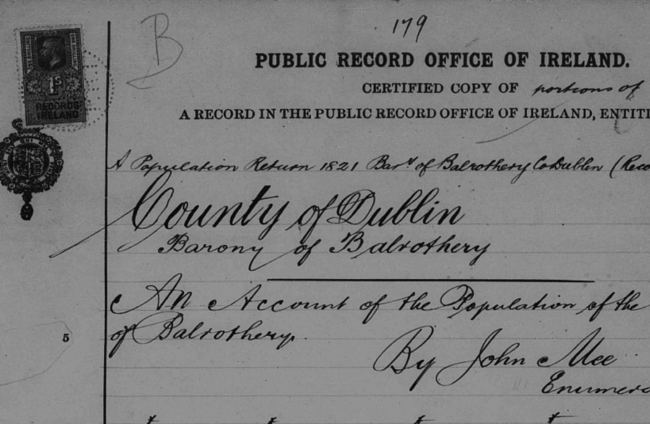 179
B
PUBLIC RECORD OFFICE OF IRELAND.
CERTIFIED COPY OF portions of
A RECORD IN THE PUBLIC RECORD OFFICE OF IRELAND, ENTITI
1S
RECORDS
IRELAND
A Population Return 1821 Bary of Balrothery Co Dublin (Reco
County of Dublin
Barony of Balrothery
An Account of the Population of the
5
of Balrothery.
By John Mee
Enumera